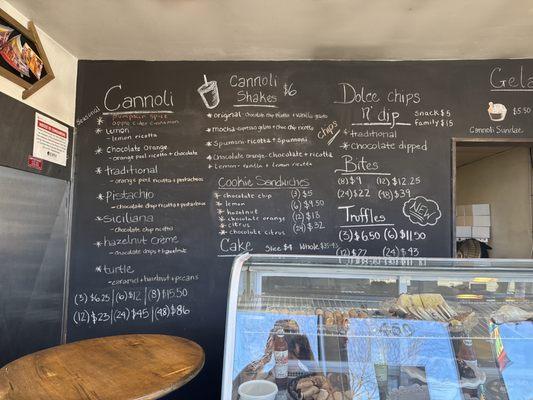 Seasonal
Cannoli
* pumpkin spice
apple cider cinnamon
* Lemon
- Lemon ricotta
* chocolate orange
- orange peel ricotta + chocolate
* traditional
- orange peel ricotta + pistachios
* Pistachio
- chocolate chip ricotta + pistachios
* Siciliana
- chocolate chip ricotta
* hazelnut crème
- chocolate chips + hazelnut
* turtle
- caramel + hazelnut + pecans
(3) $6.25 | (6) $12 | (8) $15.50
(12) $23 | (24) $45 | (48) $86
Cannoli
Shakes $6
* original - chocolate chip ricotta + vanilla gelato
* mocha - espresso gelato + choc chip ricotta
* Spumani - ricotta + Spumani
* Chocolate orange - chocolate + ricotta
* Lemon - Lemon ricotta + vanilla
Cookie Sandwiches
* chocolate chip
* lemon
* hazelnut
* chocolate orange
* citrus
* chocolate citrus
(3) $5
(6) $9.50
(12) $18
(24) $32
Cake
Slice $4
Whole $35
Dolce chips
n' dip
Snack $5
Family $15
chips
* traditional
* chocolate dipped
Bites
(8) $9
(12) $12.25
(24) $22
(48) $39
Truffles
NEW
(3) $6.50
(6) $11.50
(12) $22
(24) $43
Gela
$5.50
Cannoli Sundae